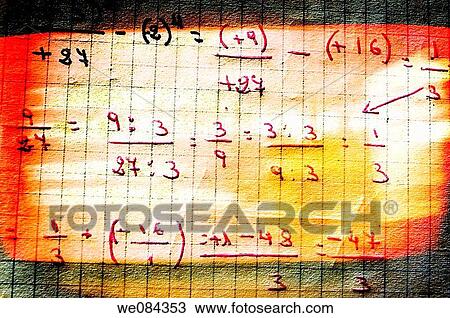 +27 - (2)⁴ = (+9)/+27 - (+16) = 1/3
9/27 = 9 : 3/27 : 3 = 3/9 = 3 : 3/9 . 3 = 1/3
FOTOSEARCH
= 1/3 + (+16/1) = +1 - 48/3 = -47/3
we084353 www.fotosearch.com